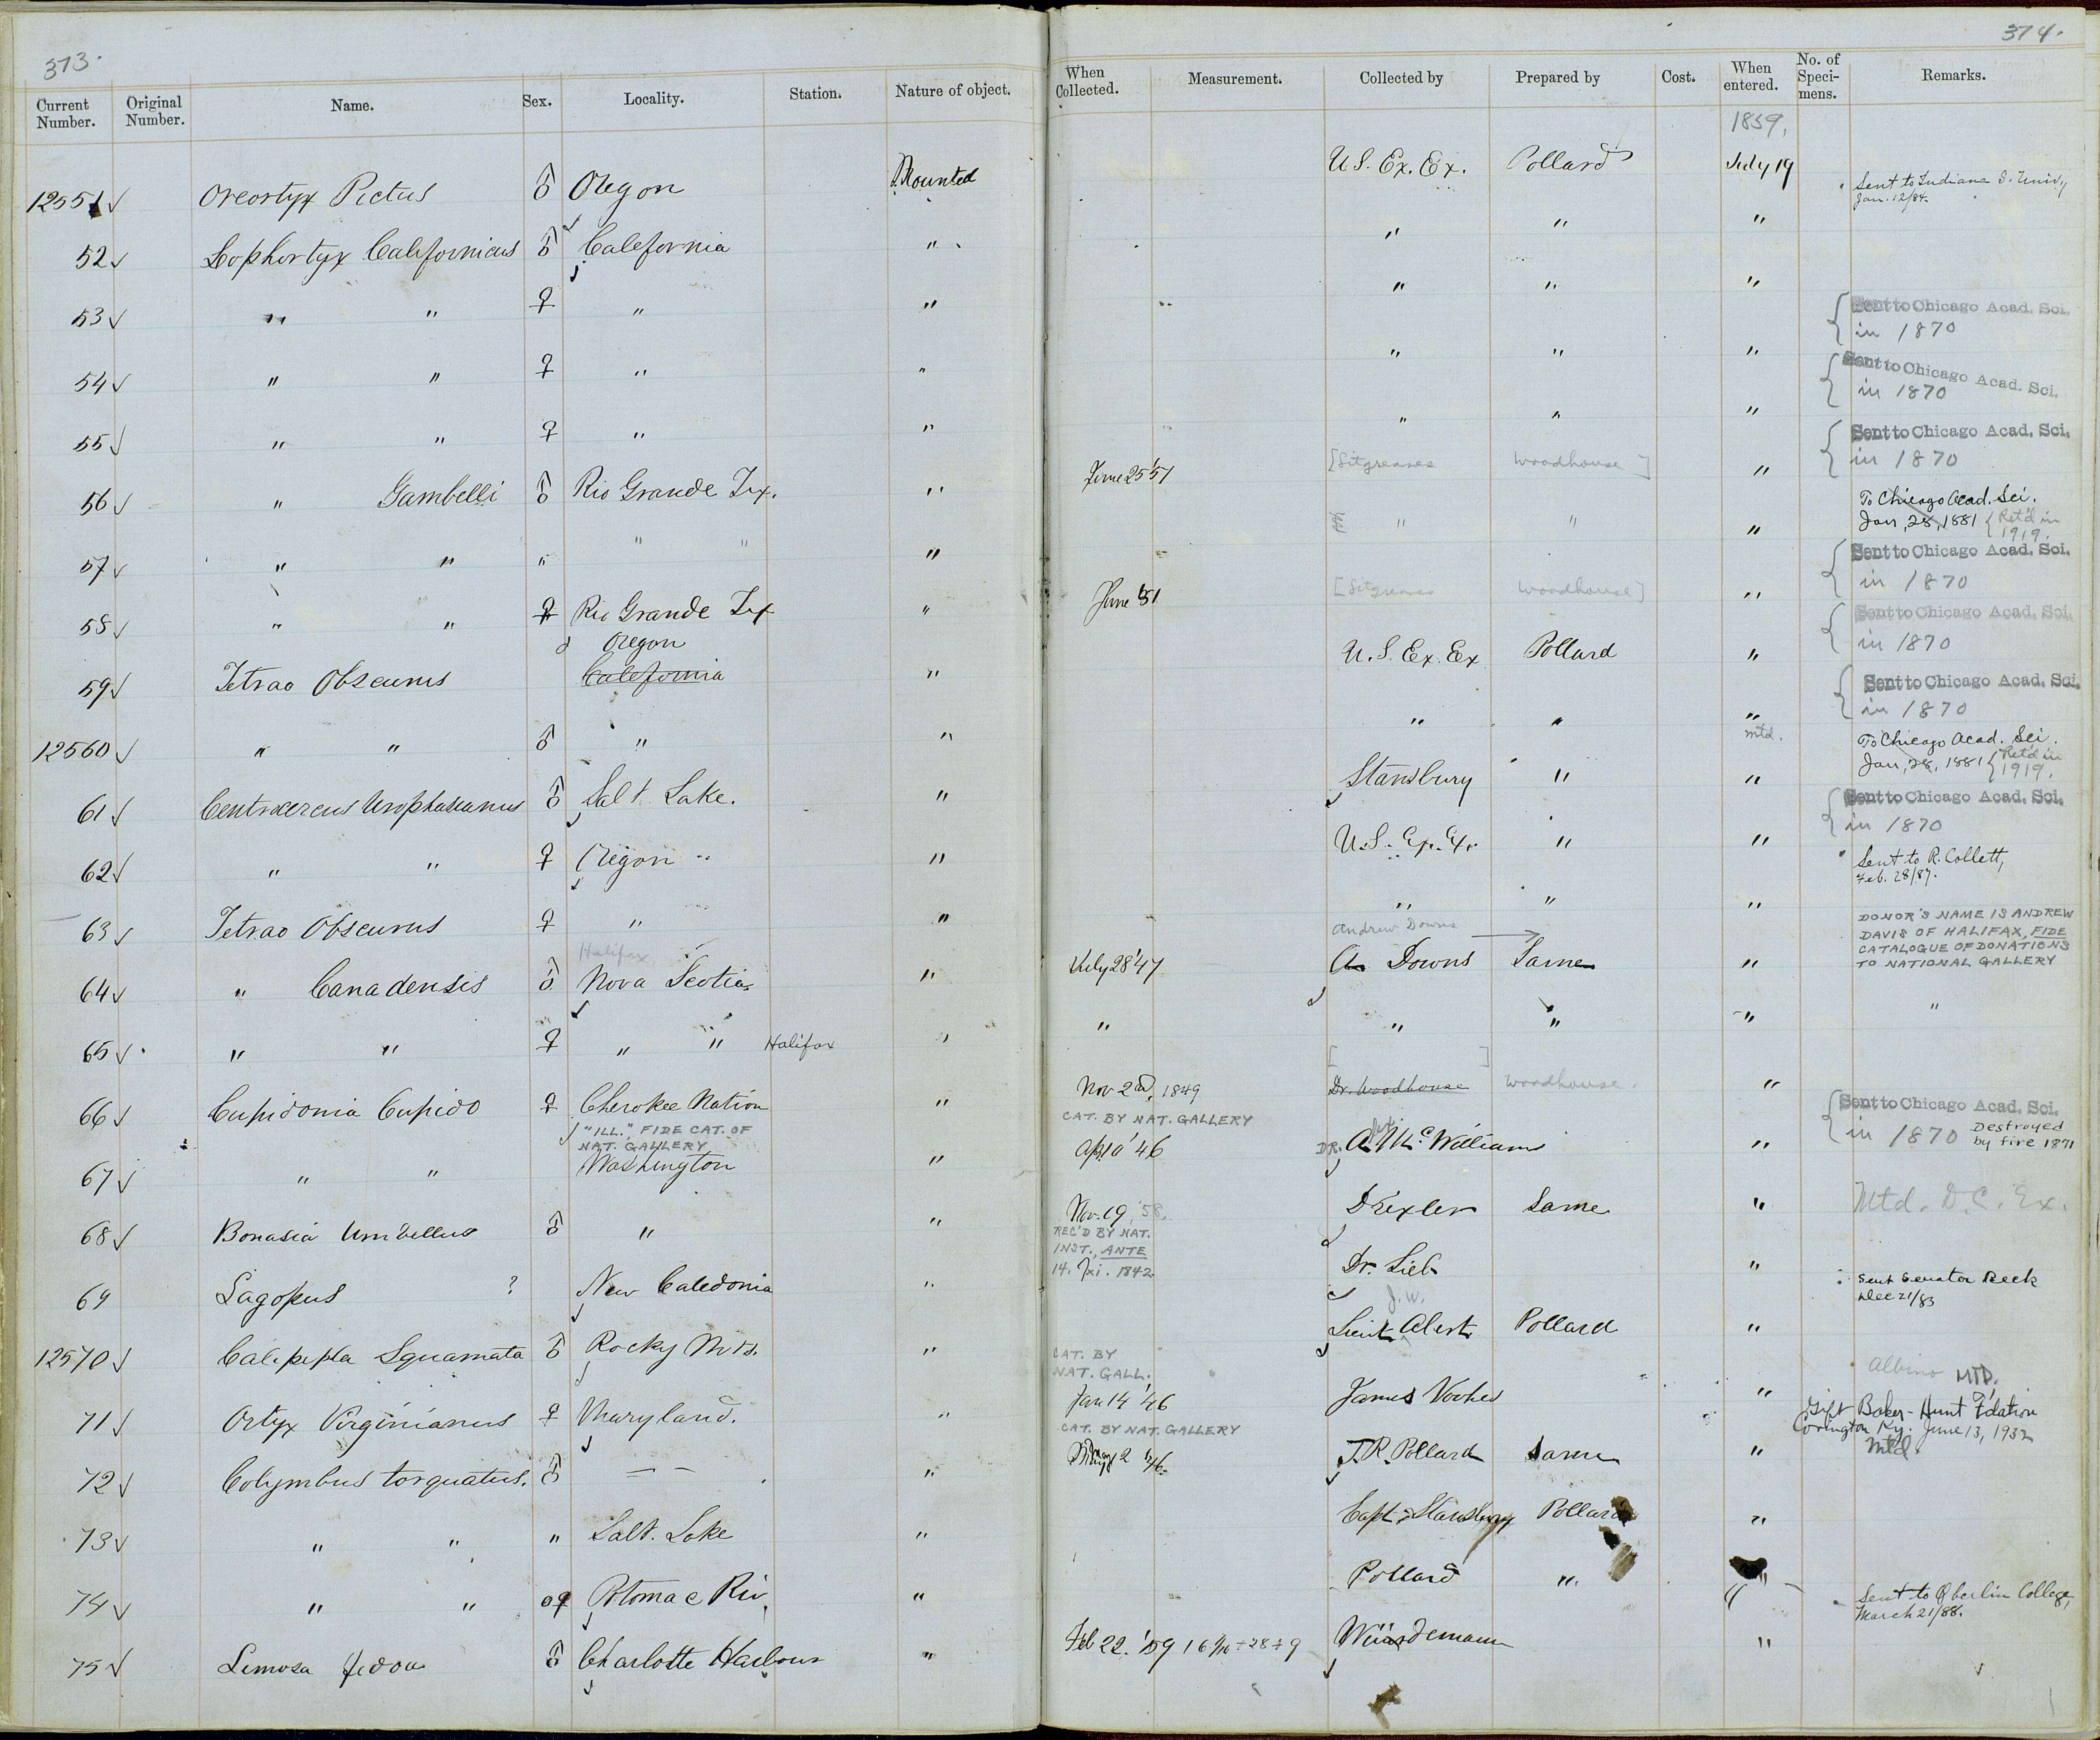 373.
374.
Current Number. Original Number. Name. Sex. Locality. Station. Nature of object. When Collected. Measurement. Collected by Prepared by Cost. When entered. No. of Specimens. Remarks.
1859,
12551 ✓ Oreortyx Pictus ♂ Oregon Mounted U.S. Ex. Ex. Pollard July 19 Sent to Indiana S. Univ,
Jan. 12/84.
52 ✓ Lophortyx Californicus ♂ California " " " "
53 ✓ " " ♀ " " " " " { Sent to Chicago Acad. Sci.
in 1870
54 ✓ " " ♀ " " " " " { Sent to Chicago Acad. Sci.
in 1870
55 ✓ " " ♀ " " " " " { Sent to Chicago Acad. Sci.
in 1870
56 ✓ " Gambelli ♂ Rio Grande Tex. " June 25 '51 [Sitgreaves Woodhouse] " To Chicago Acad. Sci.
Jan, 28, 1881 { Ret'd in
1919.
57 ✓ " " " " " " " " " { Sent to Chicago Acad. Sci.
in 1870
58 ✓ " " ♀ Rio Grande Tex " June '51 [Sitgreaves Woodhouse] " { Sent to Chicago Acad. Sci.
in 1870
Oregon
59 ✓ Tetrao Obscurus California " U.S. Ex. Ex Pollard " { Sent to Chicago Acad. Sci.
in 1870
12560 ✓ " " ♂ " " " " " mtd. To Chicago Acad. Sci.
Jan, 28, 1881 { Ret'd in
1919.
61 ✓ Centrocercus Urophasianus ♂ Salt Lake. " Stansbury " " { Sent to Chicago Acad. Sci.
in 1870
62 ✓ " " ♀ Oregon " U.S. Ex. Ex. " " Sent to R. Collett,
Feb. 28/87.
63 ✓ Tetrao Obscurus ♀ " " " " "
Halifax
Andrew Downs
64 ✓ " Canadensis ♂ Nova Scotia " July 28 '47 A. Downs Same " DONOR'S NAME IS ANDREW
DAVIS OF HALIFAX, FIDE
CATALOGUE OF DONATIONS
TO NATIONAL GALLERY
65 ✓ " " ♀ " " Halifax " " " " " "
66 ✓ Cupidonia Cupido ♀ Cherokee Nation " Nov 2d, 1849 [Dr. Woodhouse] Woodhouse. " { Sent to Chicago Acad. Sci.
in 1870 Destroyed
by fire 1871
"ILL.", FIDE CAT. OF
NAT. GALLERY
CAT. BY NAT. GALLERY
67 ✓ " " Washington " Apl 10 '46 DR. A. McWilliams "
68 ✓ Bonasia Umbellus ♂ " " Nov. 19, '58, Drexler Same " Mtd. D.C. Ex.
REC'D BY NAT.
INST., ANTE
14. xi. 1842.
69 Lagopus ? New Caledonia " Dr. Lieb " Sent Senator Beck
Dec 21/83
J.W.
12570 ✓ Calipepla Squamata ♂ Rocky Mts. " Lieut. Abert Pollard "
CAT. BY
NAT. GALL.
Albino MTD.
71 ✓ Ortyx Virginianus ♀ Maryland. " Jan 14 '46 James Vookes " Gift Baker-Hunt Fdation
Covington Ky. June 13, 1932
CAT. BY NAT. GALLERY
Mtd
72 ✓ Colymbus torquatus. ♂ — — " 2 '46. J.R. Pollard Same "
73 ✓ " " " Salt. Lake " Capt. Stansbury Pollard "
74 ✓ " " ♀ Potomac Riv. " Pollard " " Sent to Oberlin College,
March 21/88.
75 ✓ Limosa fedoa ♂ Charlotte Harbour " Feb 22. '59 Würdemann "